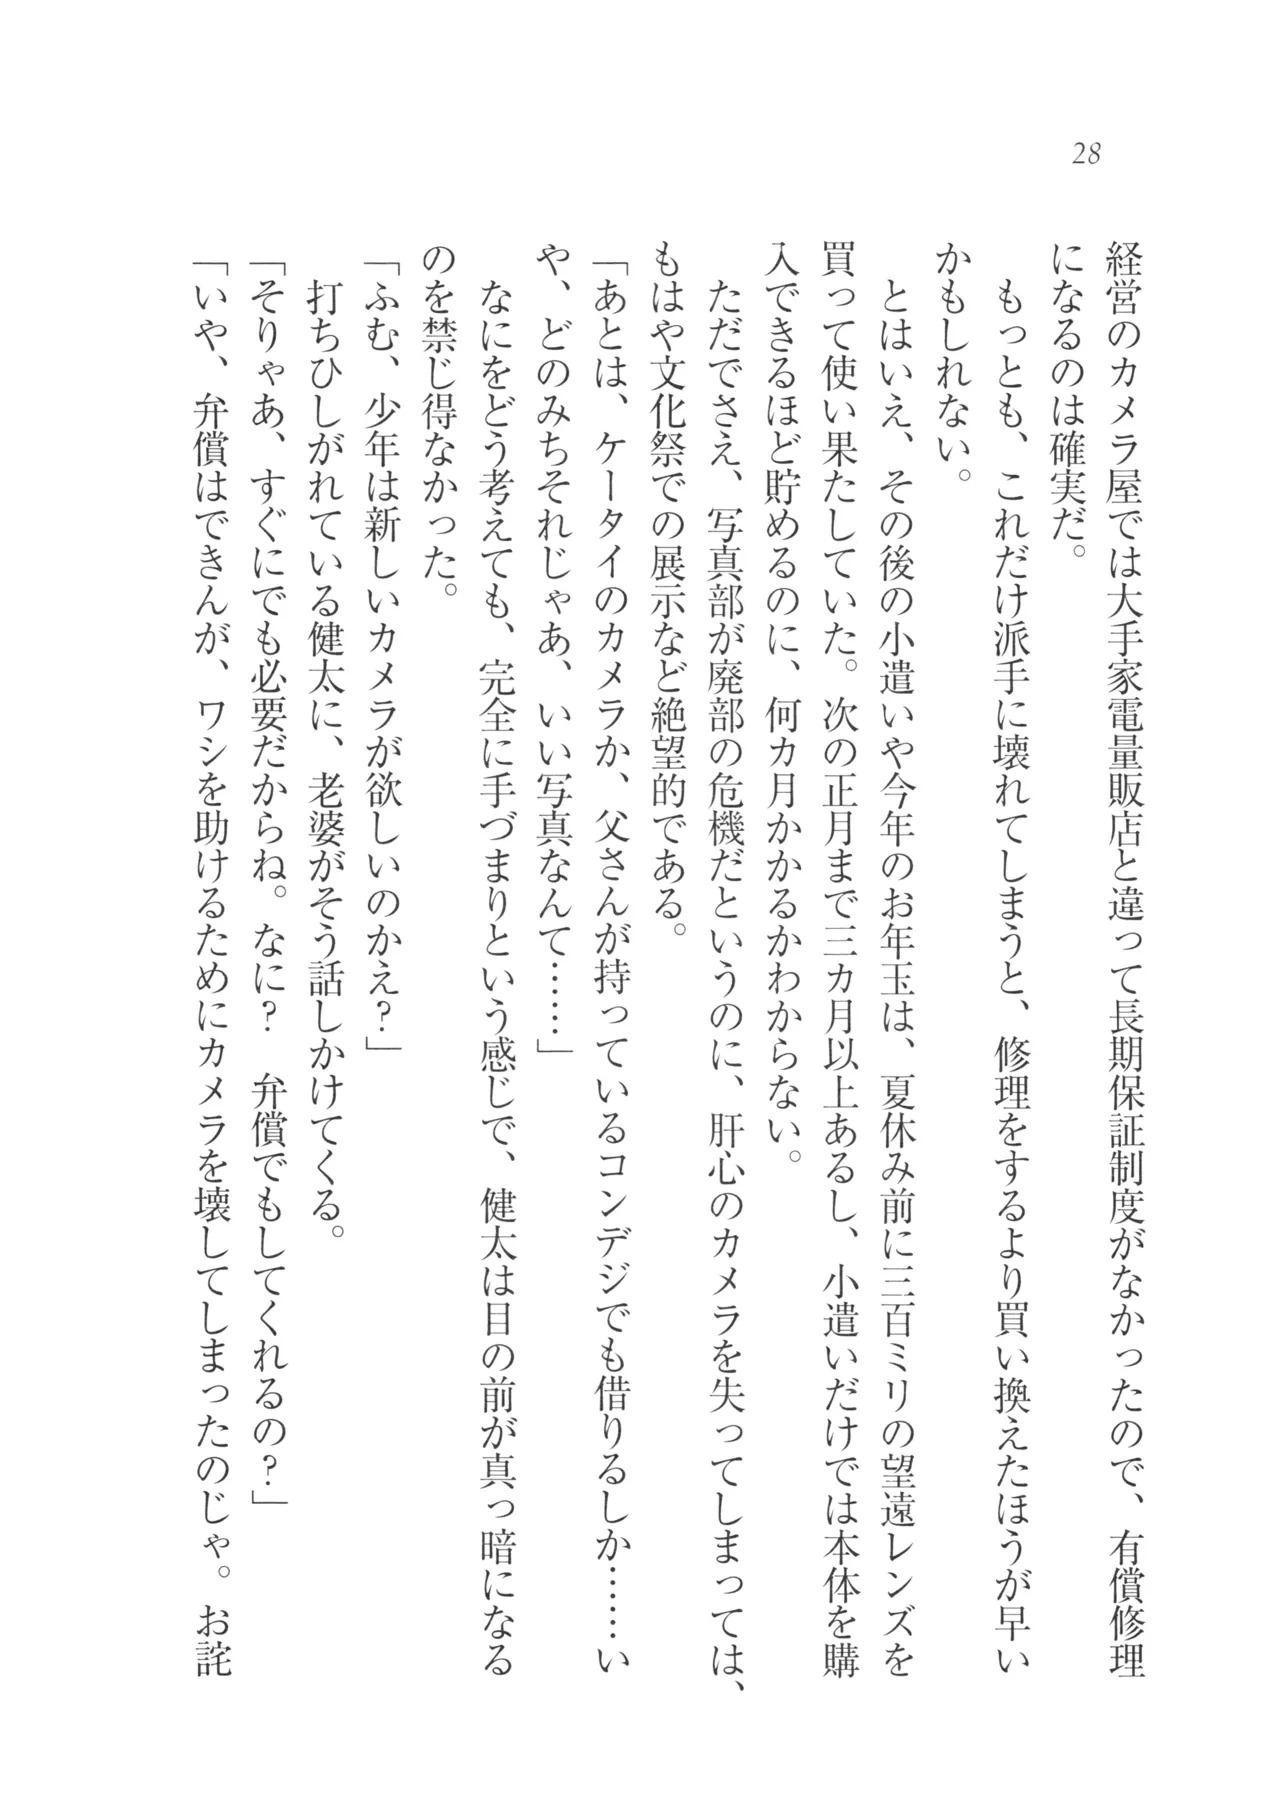 28
経営のカメラ屋では大手家電量販店と違って長期保証制度がなかったので、有償修理
になるのは確実だ。
　もっとも、これだけ派手に壊れてしまうと、修理をするより買い換えたほうが早い
かもしれない。
　とはいえ、その後の小遣いや今年のお年玉は、夏休み前に三百ミリの望遠レンズを
買って使い果たしていた。次の正月まで三カ月以上あるし、小遣いだけでは本体を購
入できるほど貯めるのに、何カ月かかるかわからない。
　ただでさえ、写真部が廃部の危機だというのに、肝心のカメラを失ってしまっては、
もはや文化祭での展示など絶望的である。
「あとは、ケータイのカメラか、父さんが持っているコンデジでも借りるしか……い
や、どのみちそれじゃあ、いい写真なんて……」
　なにをどう考えても、完全に手づまりという感じで、健太は目の前が真っ暗になる
のを禁じ得なかった。
「ふむ、少年は新しいカメラが欲しいのかえ？」
　打ちひしがれている健太に、老婆がそう話しかけてくる。
「そりゃあ、すぐにでも必要だからね。なに？　弁償でもしてくれるの？」
「いや、弁償はできんが、ワシを助けるためにカメラを壊してしまったのじゃ。お詫